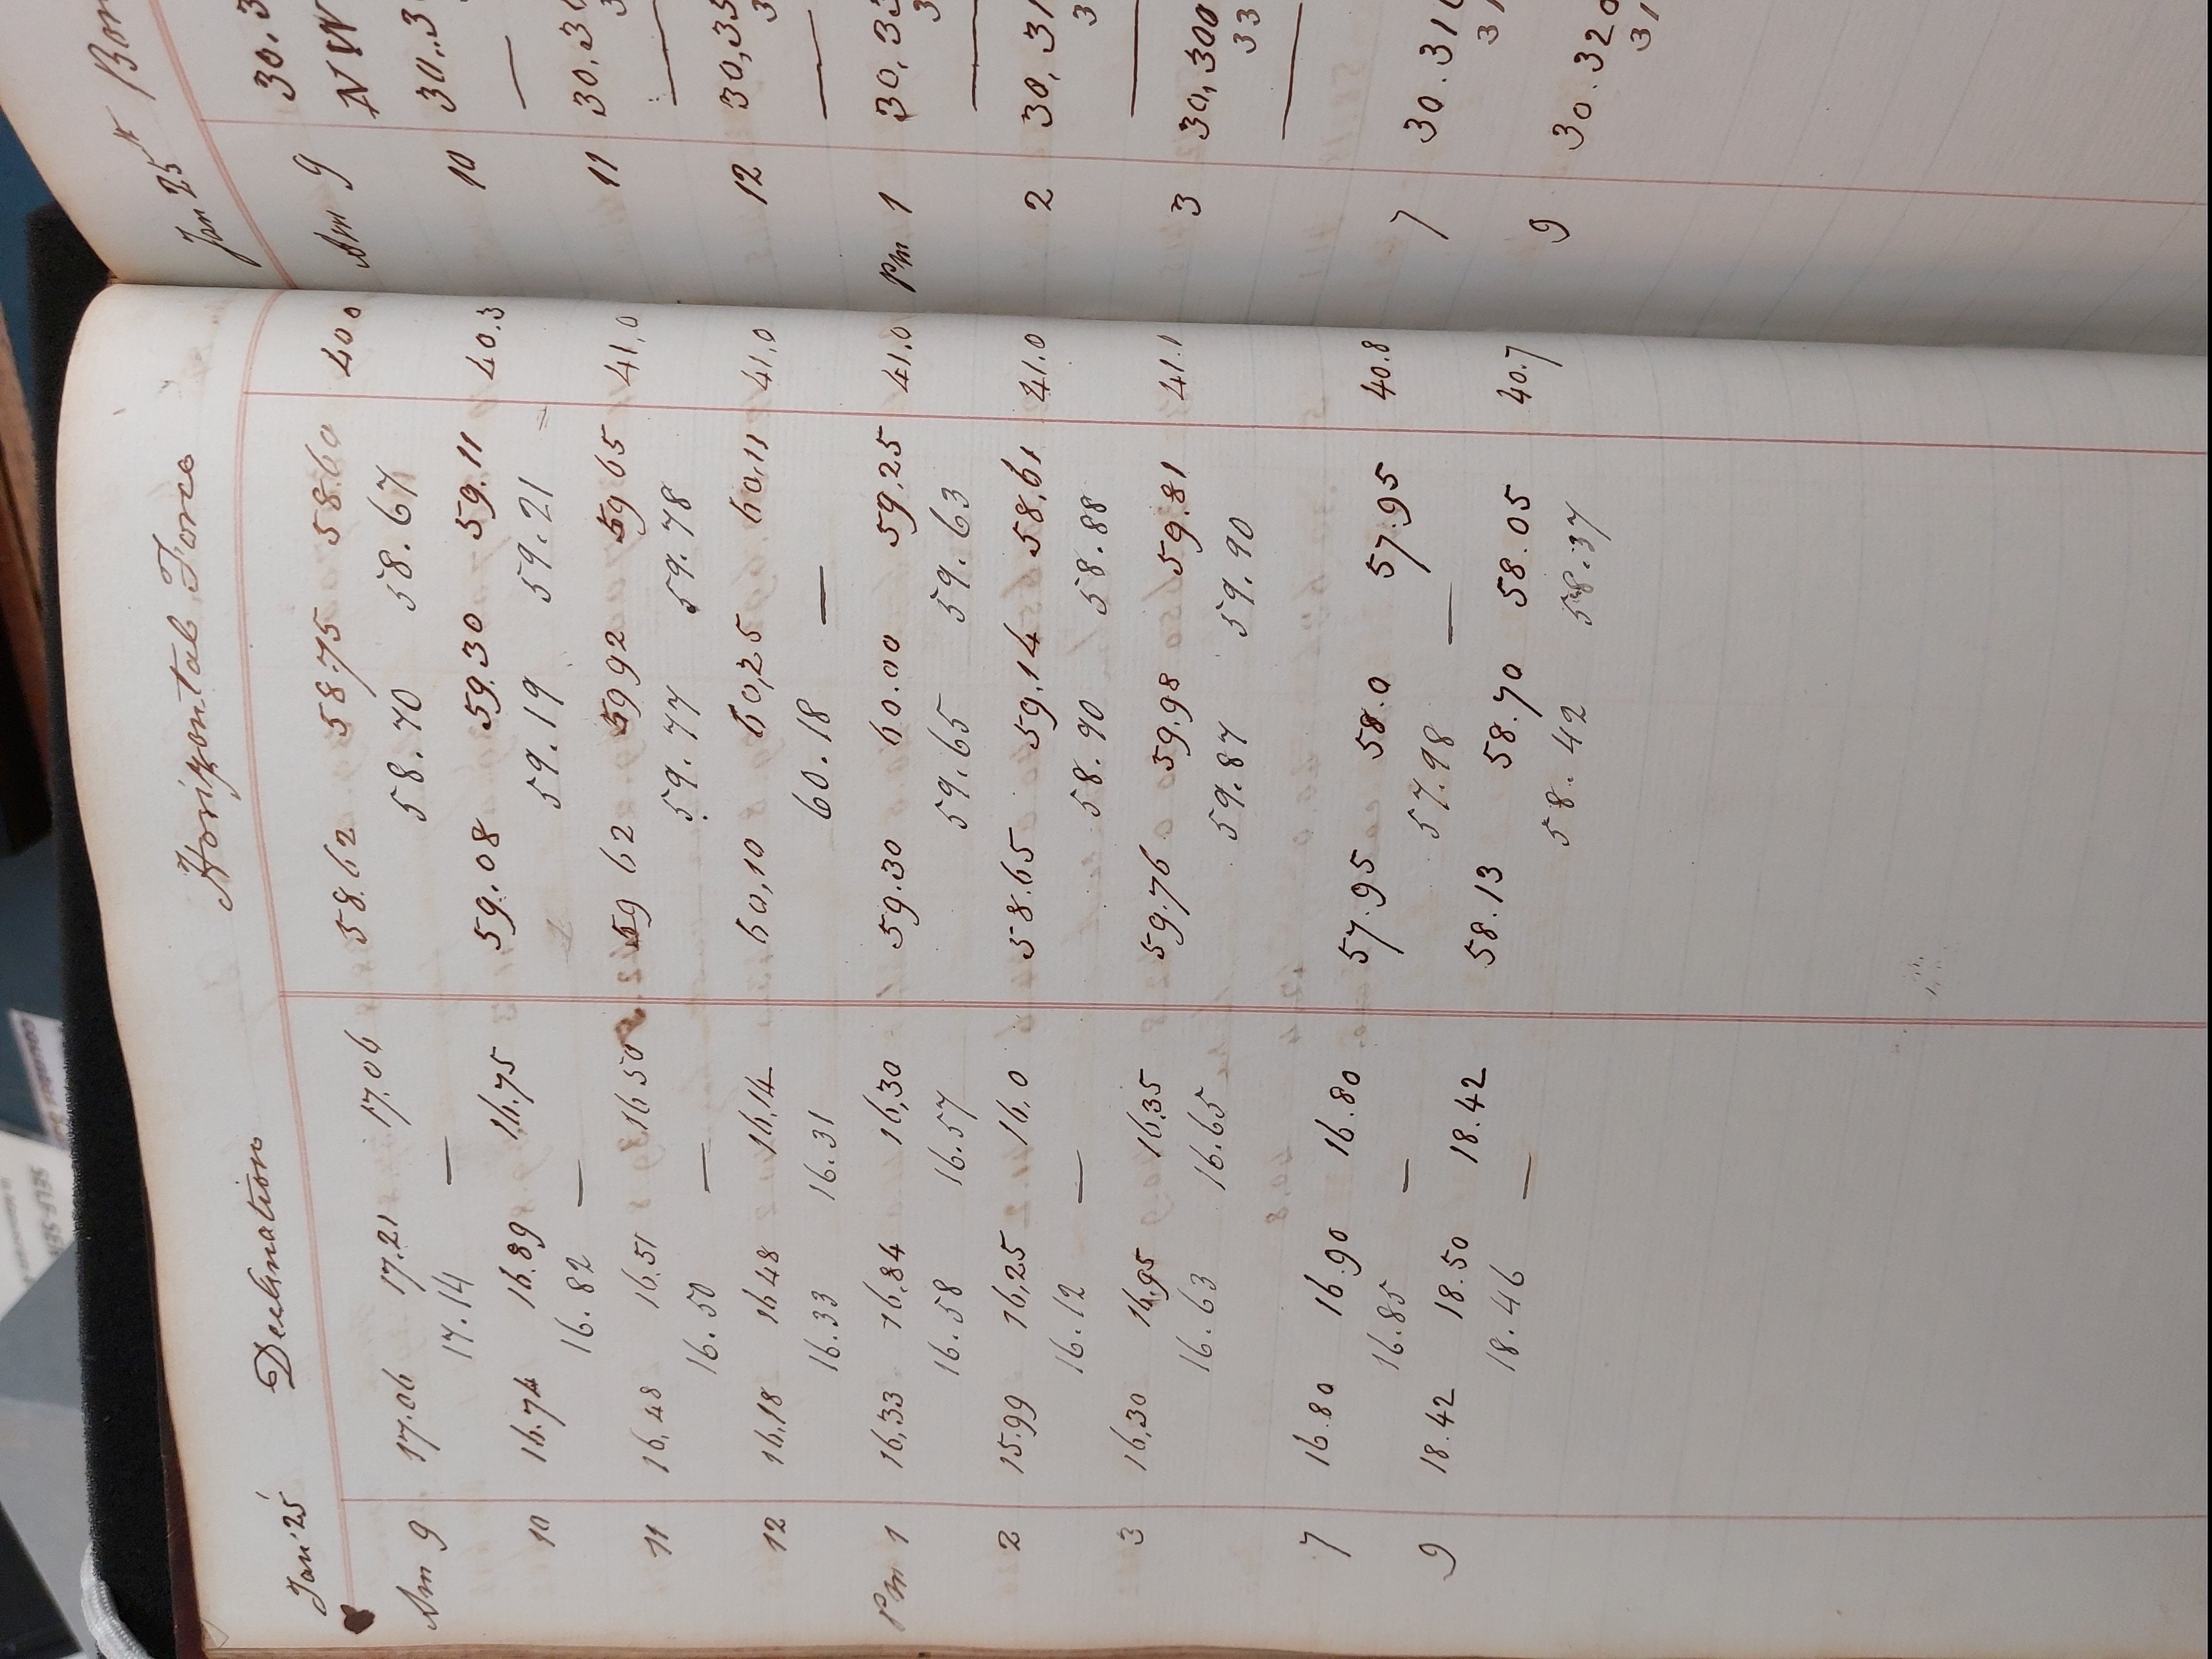 SELF-SER
COUNTER
Horizontal Force
Jan 25 Declination
58.62 58.75 58.60 40 0
Am 9 17.06 17.21 17.06
58.70 58.67
17.14 —
59.08 59.30 59.11 40.3
10 16.74 16.89 16.75
59.19 59.21
16.82 —
11 16,48 16.51 16 50 59 62 59 92 59 65 41,0
16.50 — 59.77 59.78
12 16,18 16 48 16,14 60,10 60,25 60,11 41,0
16.33 16.31 60.18 —
Pm 1 16,33 16,84 16,30 59.30 60.00 59,25 41.0
16.58 16.57 59.65 59.63
2 15.99 16,25 16,0 58.65 59,14 58,61 41.0
16.12 — 58.90 58.88
3 16,30 16,95 16,35 59.76 59.98 59.81 41.1
16.63 16.65 59.87 59.90
7 16.80 16.90 16.80 57.95 58.0 57.95 40.8
16.85 — 57.98 —
9 18.42 18.50 18.42 58.13 58.70 58.05 40.7
18.46 — 58.42 58.37
Jan 25th
30.3
Am 9 NW
10 30..3
—
11 30,3
3
—
12 30,35
3
—
Pm 1 30,33
3
—
2 30,31
3
—
3 30,300
33
—
7 30.31
31
9 30.320
31